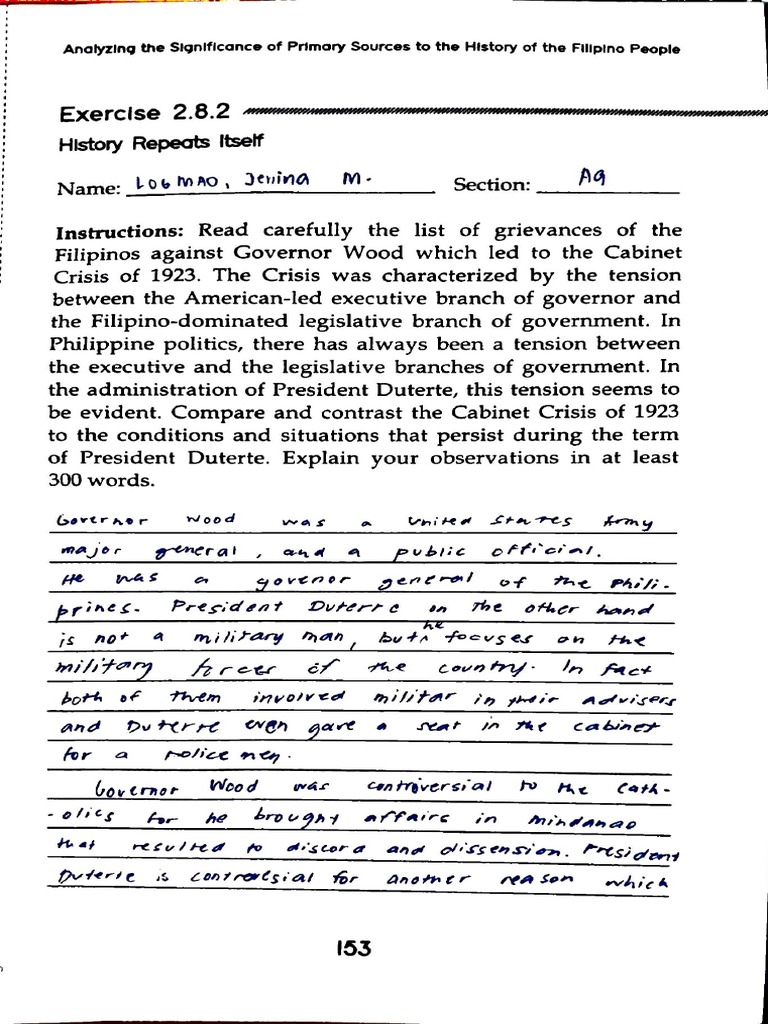 Analyzing the Significance of Primary Sources to the History of the Filipino People
Exercise 2.8.2
History Repeats Itself
Name: LOGMAO, Jenina M. Section: A9
Instructions: Read carefully the list of grievances of the
Filipinos against Governor Wood which led to the Cabinet
Crisis of 1923. The Crisis was characterized by the tension
between the American-led executive branch of governor and
the Filipino-dominated legislative branch of government. In
Philippine politics, there has always been a tension between
the executive and the legislative branches of government. In
the administration of President Duterte, this tension seems to
be evident. Compare and contrast the Cabinet Crisis of 1923
to the conditions and situations that persist during the term
of President Duterte. Explain your observations in at least
300 words.
Governor Wood was a United States Army
major general, and a public official.
He was a govenor general of the Phili-
prines. President Duterte on the other hand
is not a military man, but he focuses on the
military forces of the country. In fact
both of them involved militar in their advisers
and Duterte even gave a seat in the cabinet
for a police men.
Governor Wood was controversial to the Cath-
-olics for he brought affairs in Mindanao
that resulted to discord and dissension. President
Duterte is controversial for another reason which
153